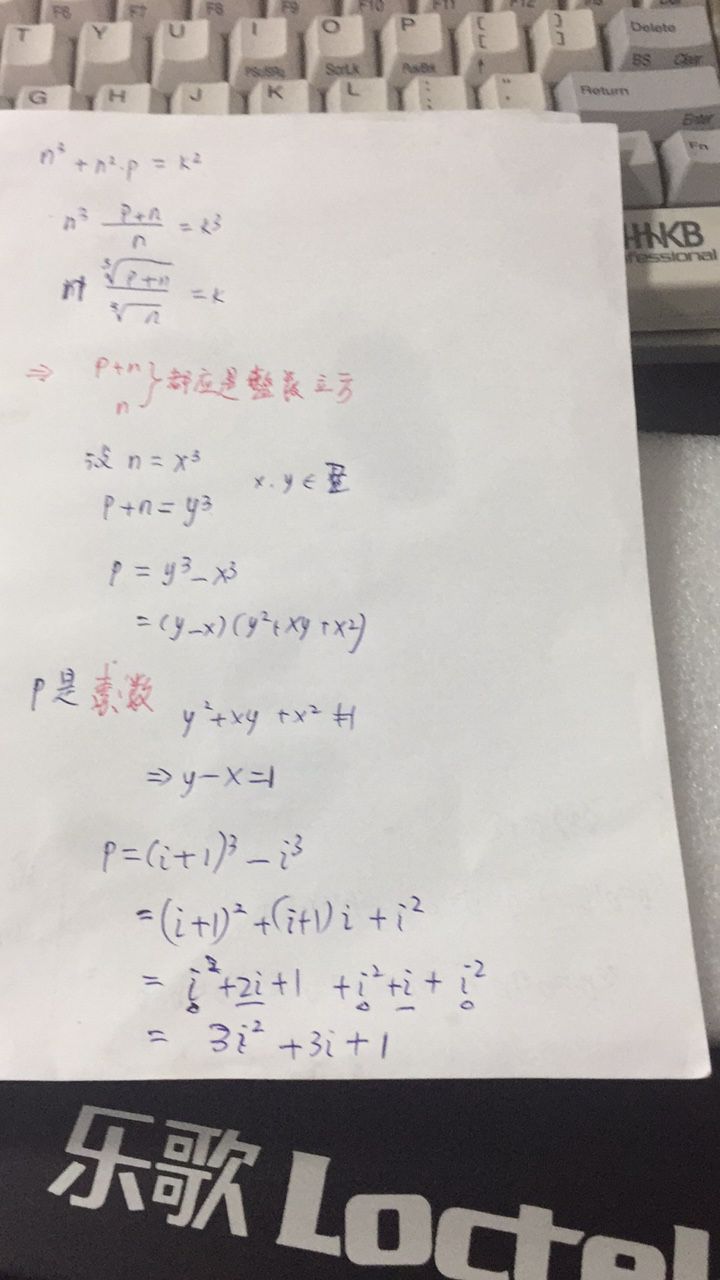 F6 F7 F8 F9 F10 F11 F12
T Y U I O P [ { ] } Delete
PScSRq ScrLk PusBrk BS Clear
G H J K L : ; " ' Return
Enter
Fn
HHKB
fessional
n³ + n²·p = k²
n³ (p+n)/n = k³
n ∛(p+n)/∛n = k
⇒ p+n } 都应是整数立方
n
设 n = x³
x.y ∈ 正整
p+n = y³
p = y³-x³
= (y-x)(y²+xy+x²)
p是素数
y²+xy+x² ≠1
⇒ y-x=1
p=(i+1)³-i³
=(i+1)²+(i+1)i+i²
= i²+2i+1 +i²+i+i²
= 3i²+3i+1
乐歌 Loctek